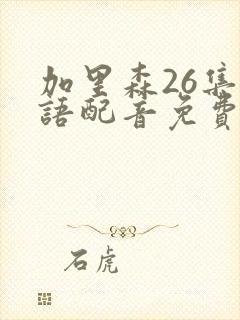 加里森26集
語配音免費
石虎